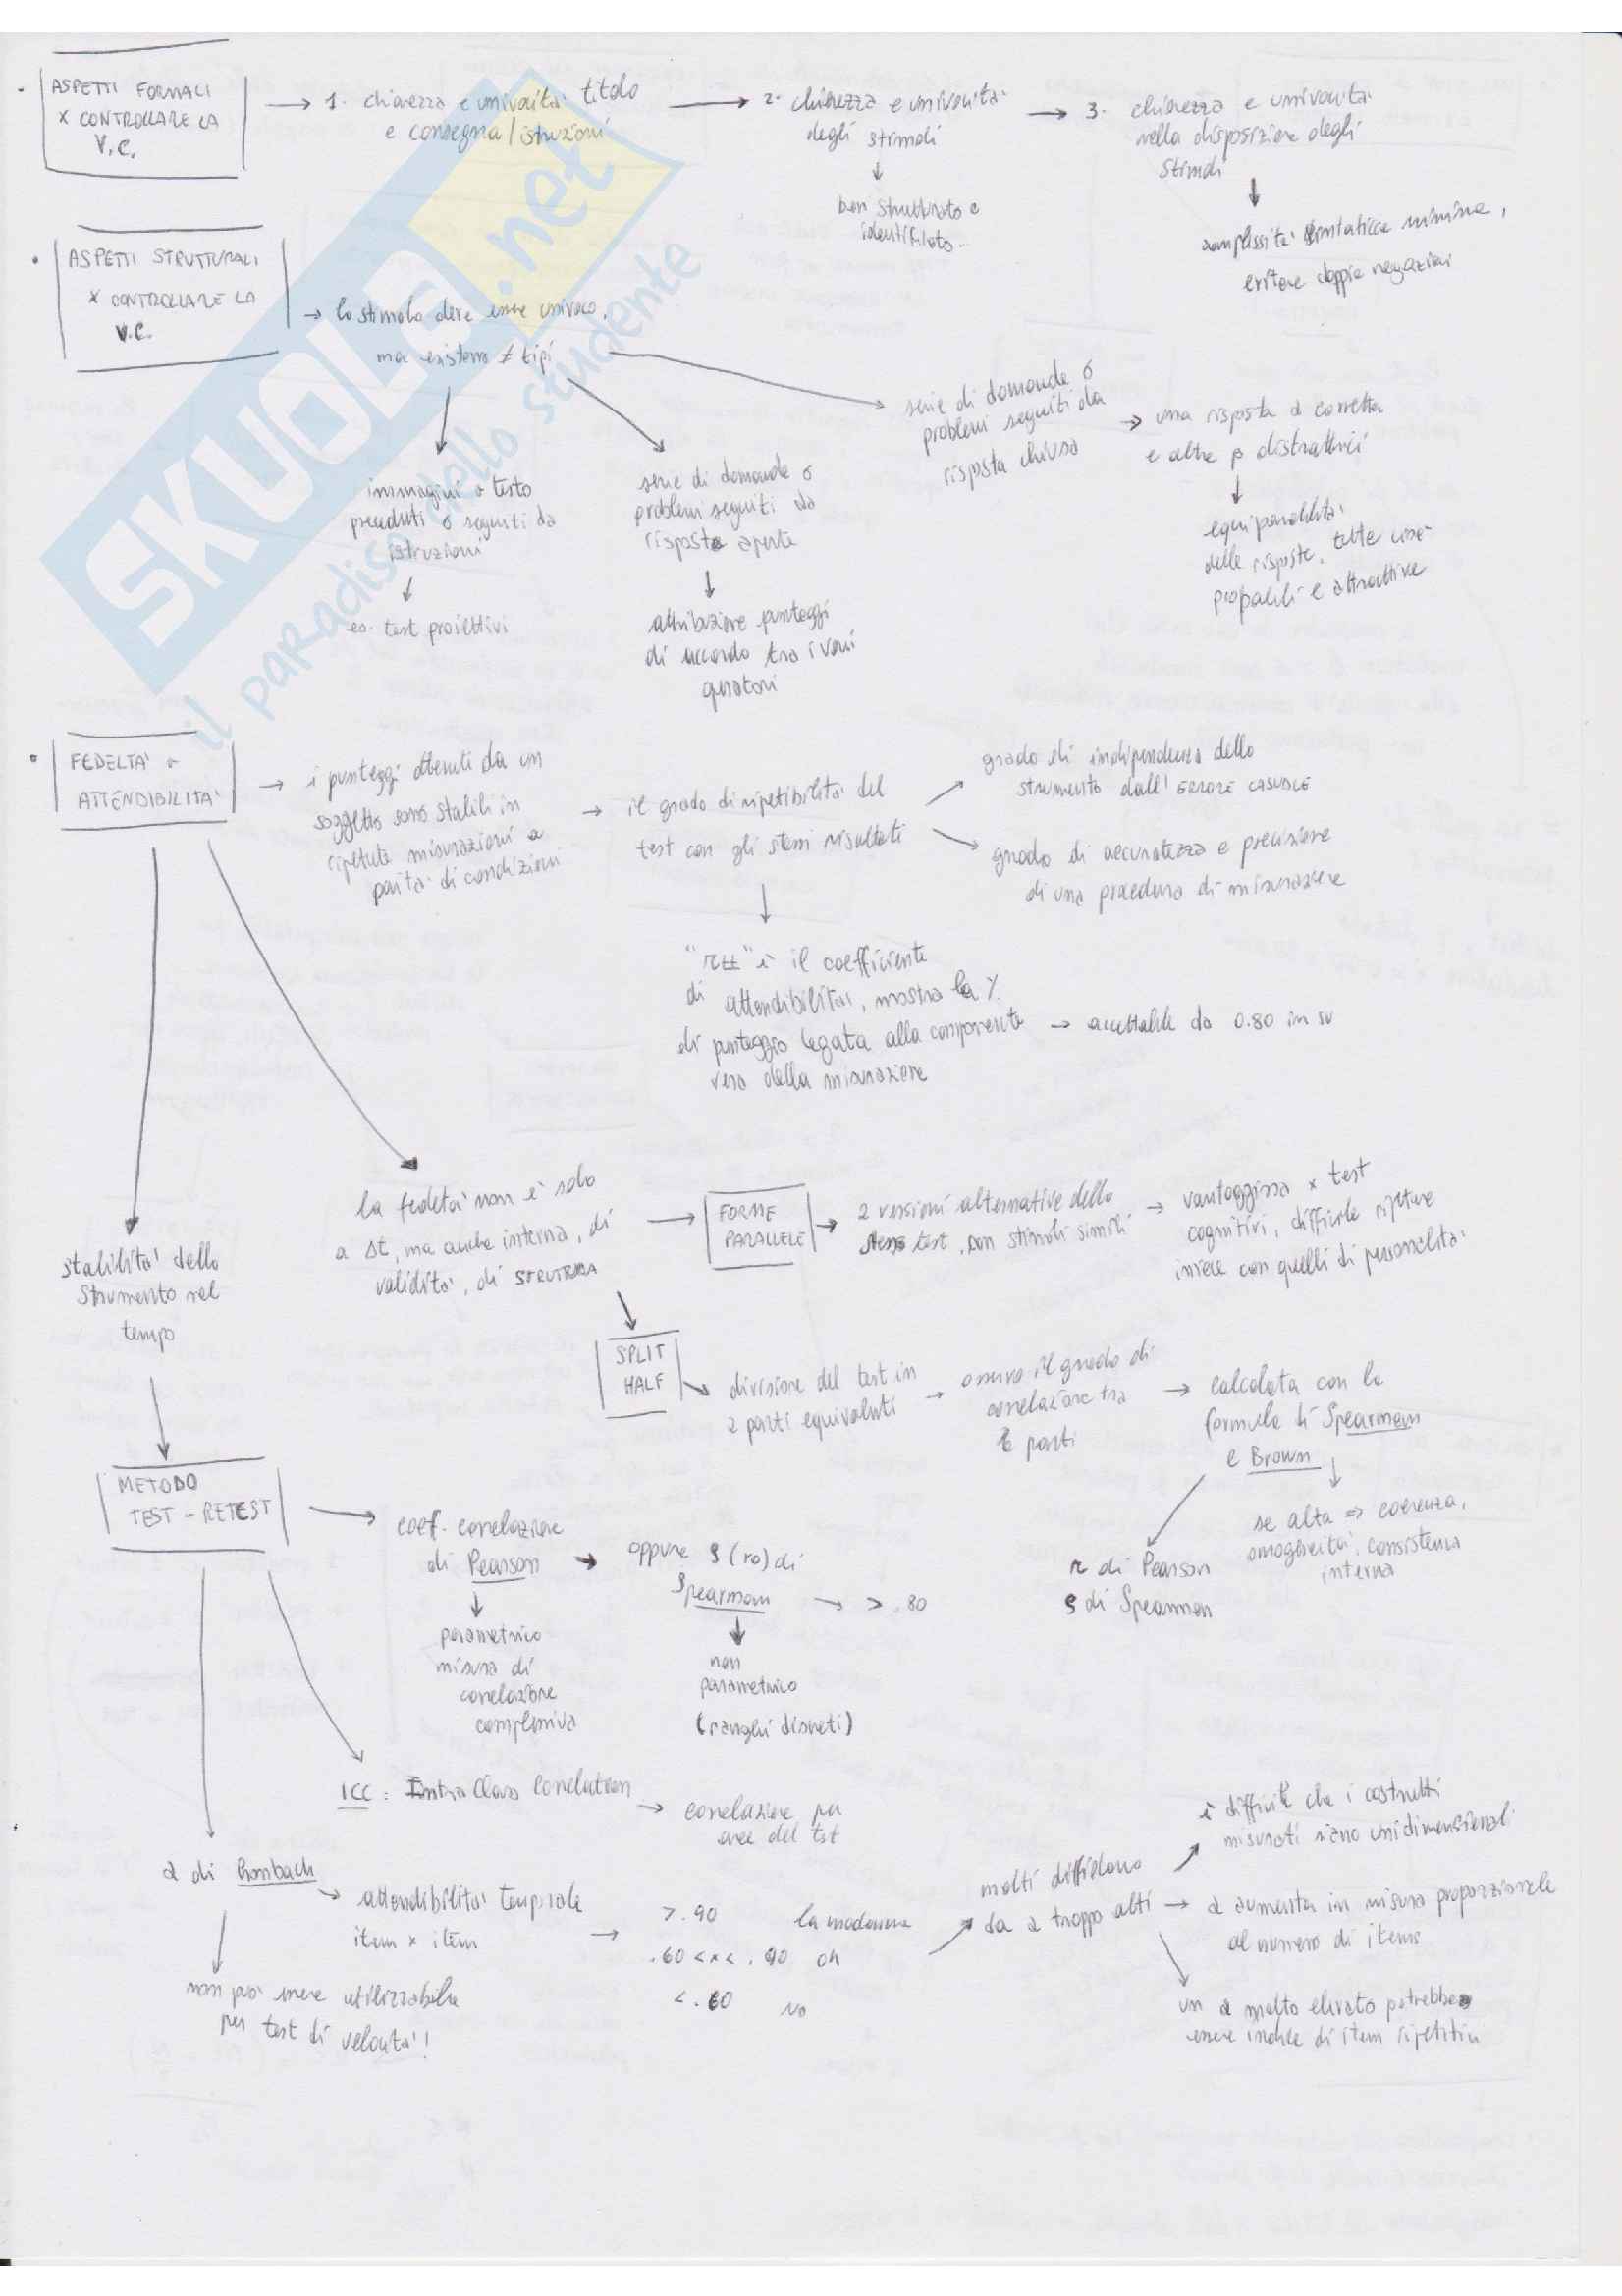 ASPETTI FORMALI
X CONTROLLARE LA
V.C.
→ 1. chiarezza e univocità titolo
e consegna/istruzioni
→ 2. chiarezza e univocità
degli stimoli
↓
ben strutturato e
identificato.
→ 3. chiarezza e univocità
nella disposizione degli
stimoli
↓
complessità sintattica minima,
evitare doppie negazioni
ASPETTI STRUTTURALI
X CONTROLLARE LA
V.C.
→ lo stimolo deve essere univoco,
ma esistono ≠ tipi
immagini o testo
preceduti o seguiti da
istruzioni
↓
es. test proiettivi
serie di domande o
problemi seguiti da
risposte aperte
↓
attribuzione punteggi
di accordo tra i vari
serie di domande o
problemi seguiti da
risposta chiusa
→ una risposta è corretta
e altre distrattrici
↓
equiparabilità
delle risposte, tutte
probabili e attrattive
SKUOLA.net
il paradiso dello studente
FEDELTA' o
ATTENDIBILITA'
→ i punteggi ottenuti da un
soggetto sono stabili in
ripetute misurazioni a
parità di condizioni
→ il grado di ripetibilità del
test con gli stessi risultati
grado di indipendenza dello
strumento dall' ERRORE CASUALE
grado di accuratezza e precisione
di una procedura di misurazione
↓
"rtt" è il coefficiente
di attendibilità, mostra la %
di punteggio legata alla componente
vera della misurazione
→ accettabile da 0.80 in su
stabilità dello
strumento nel
tempo
la fedeltà non è solo
a Δt, ma anche interna, di
validità, di STRUTTURA
→ FORME
PARALLELE
→ 2 versioni alternative dello
stesso test, con stimoli simili
→ vantaggiosa x test
cognitivi, difficile ripetere
invece con quelli di personalità
SPLIT
HALF
divisione del test in
2 parti equivalenti
→ osservo il grado di
correlazione tra
le parti
→ calcolata con la
formula di Spearman
e Brown
r di Pearson
ρ di Spearman
se alta ⇒ coerenza,
omogeneità, consistenza
interna
METODO
TEST - RETEST
→ coef. correlazione
di Pearson
↓
parametrico
misura di
correlazione
complessiva
→ oppure ρ (ro) di
Spearman → > .80
↓
non
parametrico
(ranghi discreti)
ICC: Intra Class Correlation
→ correlazione per
aree del test
α di Cronbach
attendibilità temporale
item x item
non può essere utilizzabile
per test di velocità!
→ >.90 la moderna
.60 <x< .90 ok
<.60 NO
molti diffidano
da α troppo alti
è difficile che i costrutti
misurati siano unidimensionali
→ α aumenta in misura proporzionale
al numero di items
un α molto elevato potrebbe
essere indice di item ripetitivi